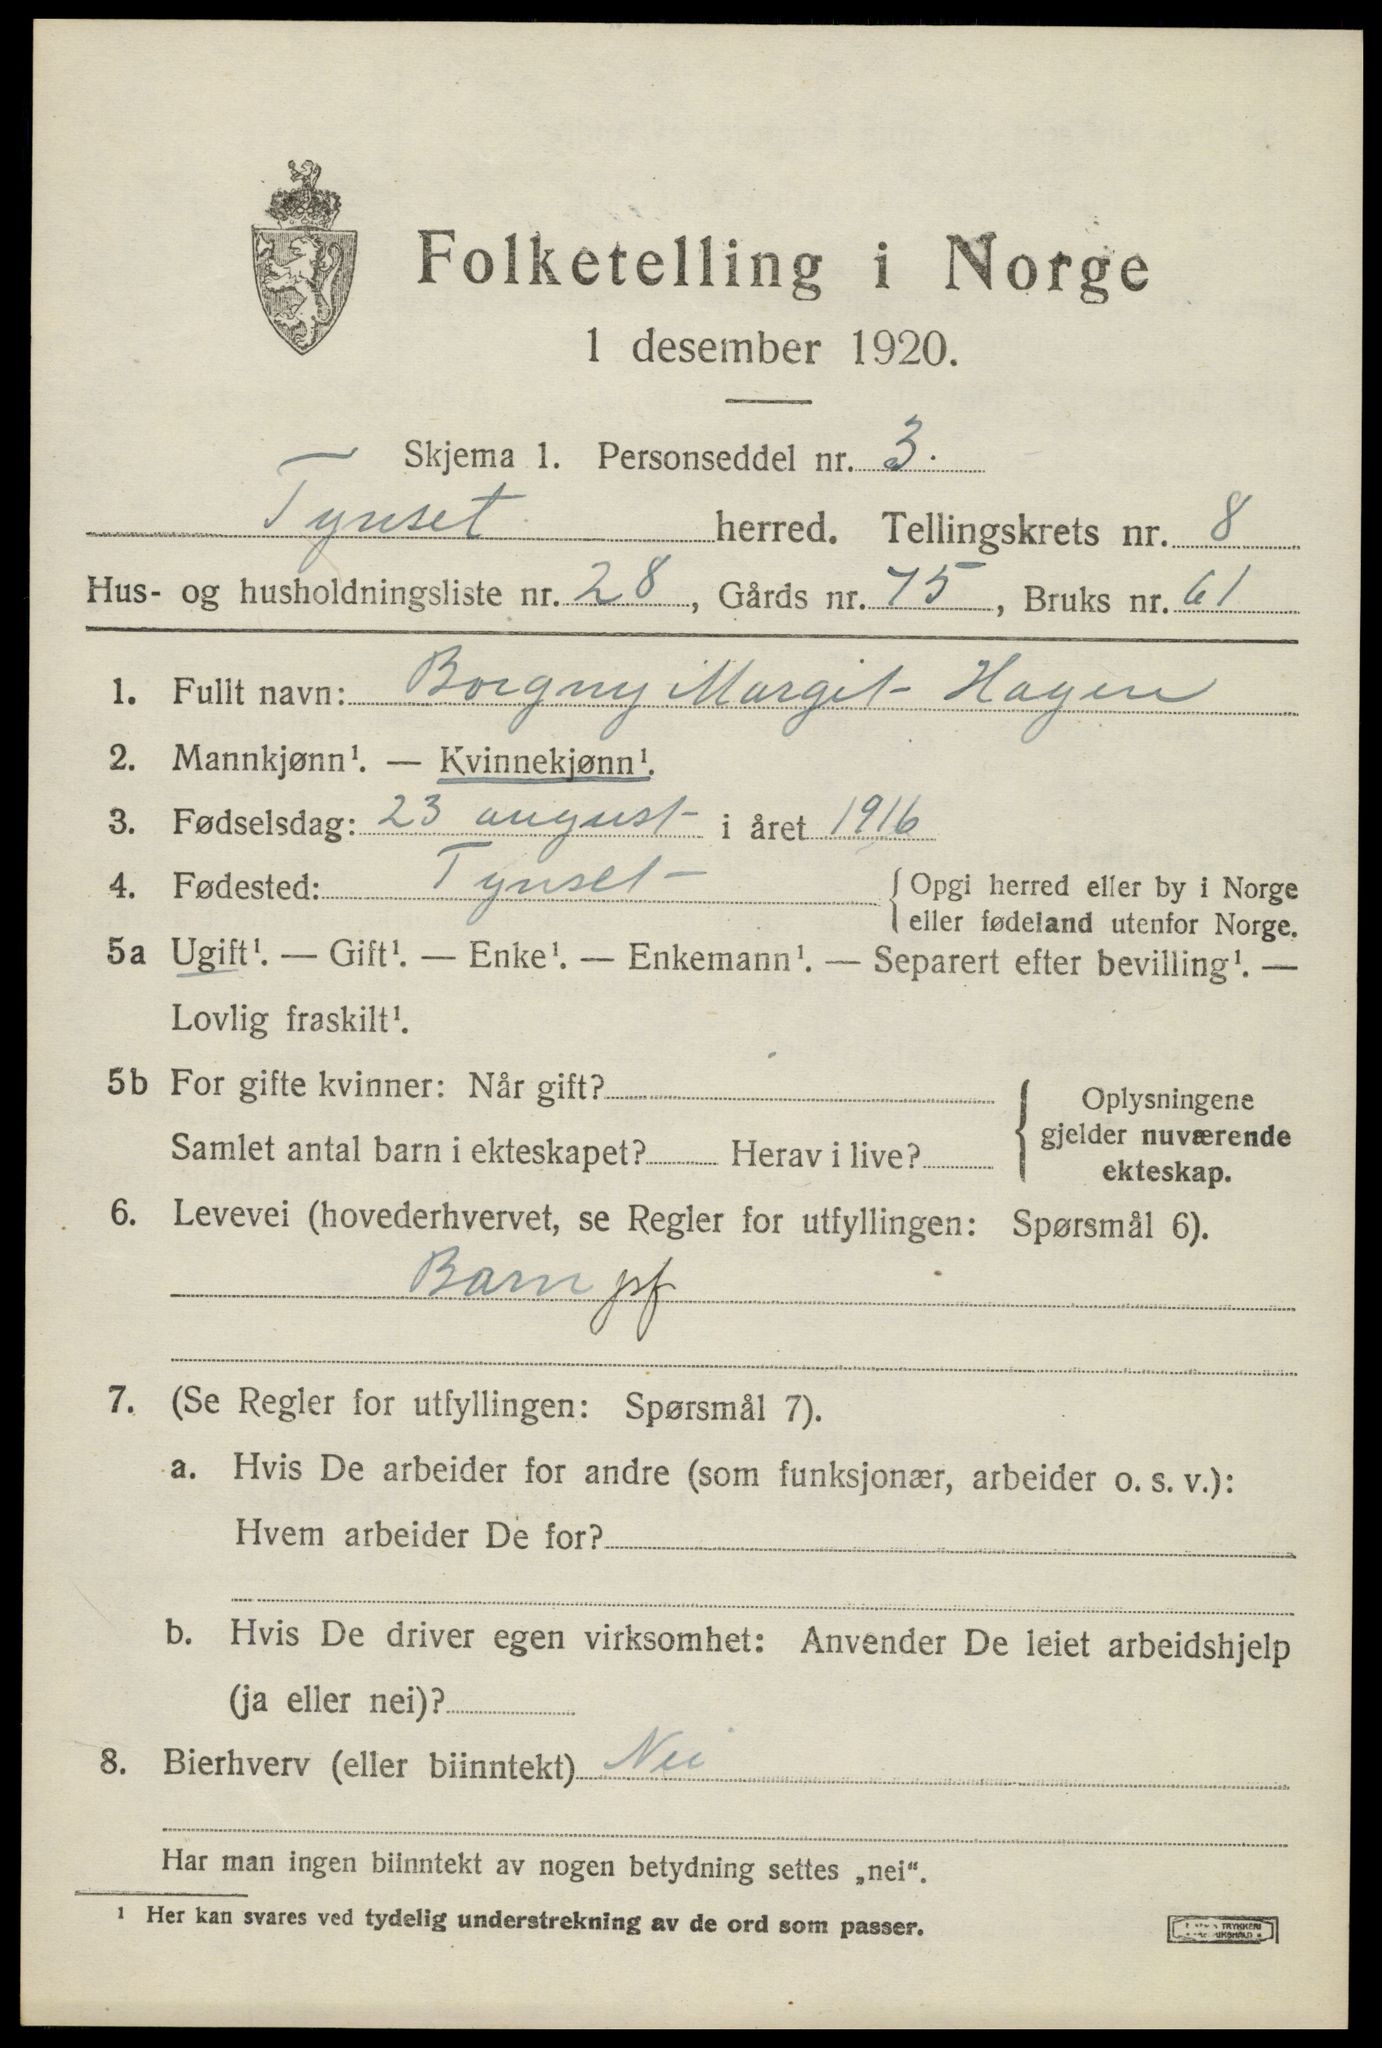 Folketelling i Norge
1 desember 1920.
Skjema 1. Personseddel nr. 3.
Tynset herred. Tellingskrets nr. 8
Hus- og husholdningsliste nr. 28, Gårds nr. 75, Bruks nr. 61
1. Fullt navn: Borgny Margit Hagen
2. Mannkjønn¹. — Kvinnekjønn¹.
3. Fødselsdag: 23 august i året 1916
4. Fødested: Tynset
Opgi herred eller by i Norge
eller fødeland utenfor Norge.
5a Ugift¹. — Gift¹. — Enke¹. — Enkemann¹. — Separert efter bevilling¹. —
Lovlig fraskilt¹.
5b For gifte kvinner: Når gift?
Samlet antal barn i ekteskapet? Herav i live?
Oplysningene
gjelder nuværende
ekteskap.
6. Levevei (hovederhvervet, se Regler for utfyllingen: Spørsmål 6).
Barn pf
7. (Se Regler for utfyllingen: Spørsmål 7).
a. Hvis De arbeider for andre (som funksjonær, arbeider o. s. v.):
Hvem arbeider De for?
b. Hvis De driver egen virksomhet: Anvender De leiet arbeidshjelp
(ja eller nei)?
8. Bierhverv (eller biinntekt) Nei
Har man ingen biinntekt av nogen betydning settes „nei“.
¹ Her kan svares ved tydelig understrekning av de ord som passer.